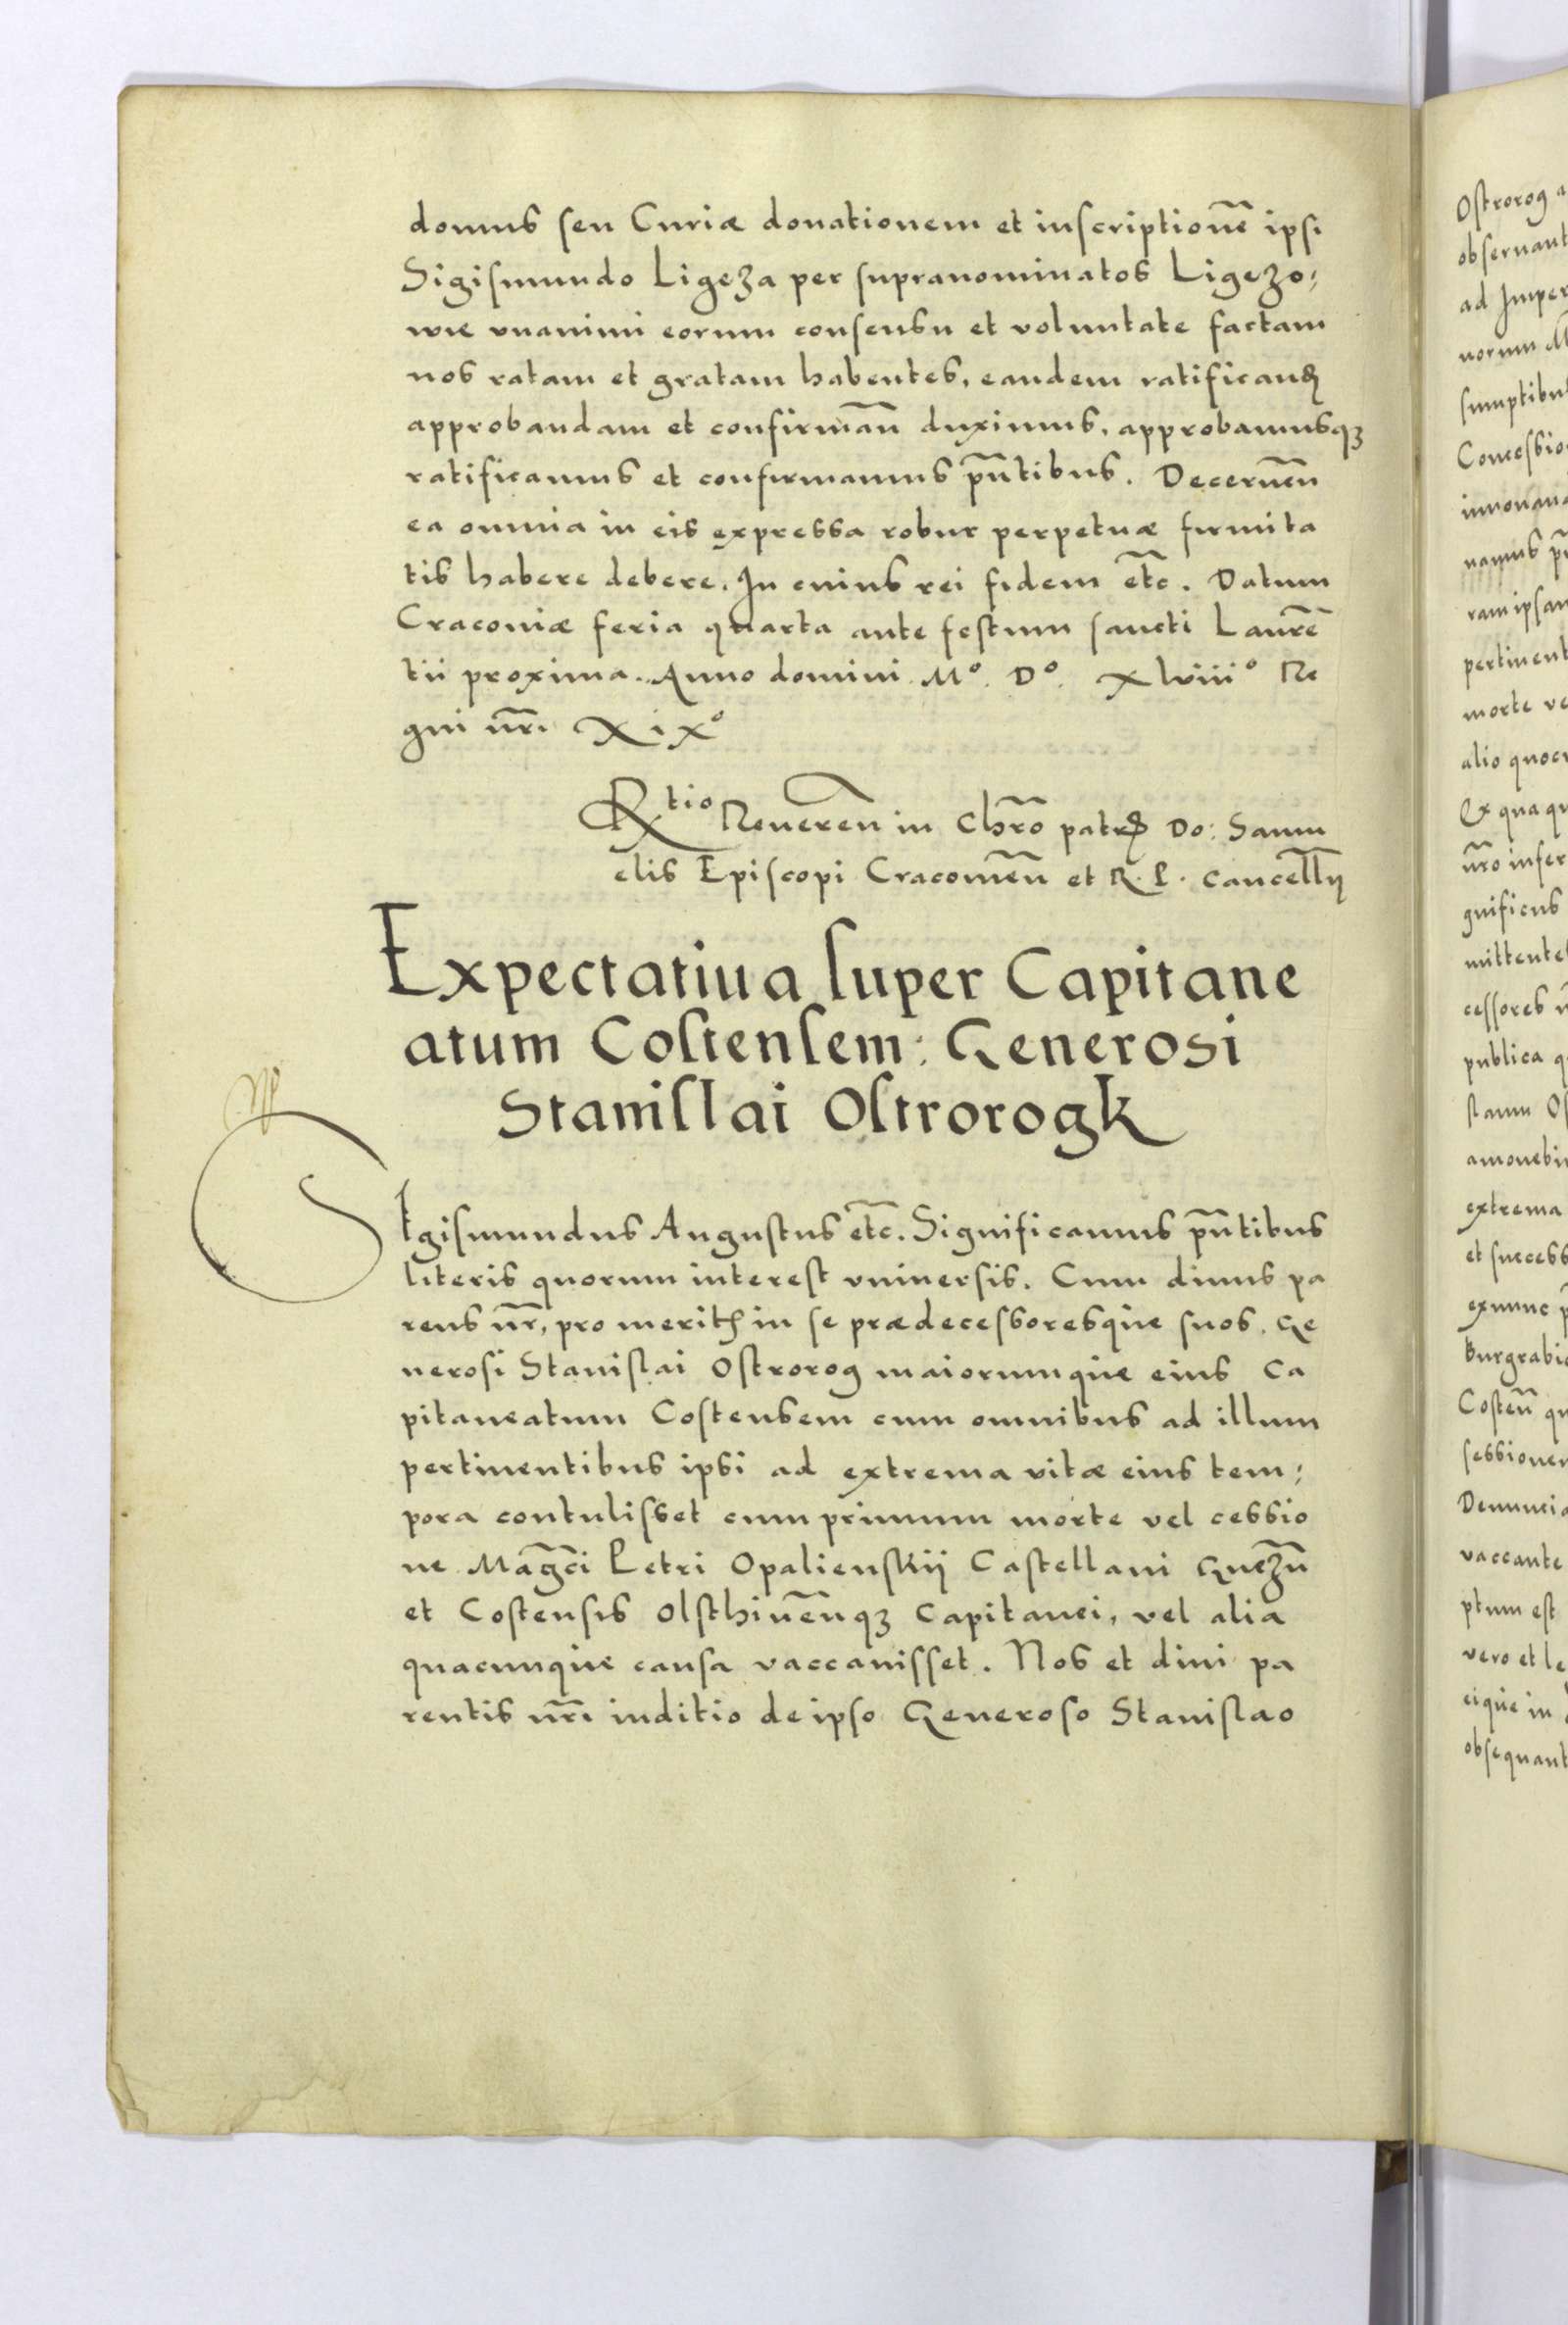 domus seu Curiæ donationem et inscriptionē ipsi
Sigismundo Ligeza per supranominatos Ligezo,
wie vnanimi eorum consensu et voluntate factam
nos ratam et gratam habentes, eandem ratificand
approbandam et confirmān duximus, approbamusqȝ
ratificamus et confirmamus pn̄tibus. Decernēn
ea omnia in eis expressa robur perpetuæ firmita
tis habere debere. In cuius rei fidem etc̄. Datum
Cracoviæ feria quarta ante festum sancti Laurē
tii proxima. Anno domini Mº. Dº. Xlviiiº Re
gni nr̄i XiXº
Rtio Reueren̄ in Chr̄o patrꝭ Do: Samu
elis Episcopi Cracovieñ et R. P. Cancell̄ij
Expectatiua super Capitane
atum Costensem: Generosi
Stanislai Ostrorogk
SIgismundus Augustus etc̄. Significamus pn̄tibus
literis quorum interest vniuersis. Cum diuus pa
rens nr̄, pro meritis in se prædecessoresque suos, Ge
nerosi Stanislai Ostrorog maiorumque eius Ca
pitaneatum Costensem cum omnibus ad illum
pertinentibus ipsi ad extrema vitæ eius tem,
pora contulisset cum primum morte vel cessio
ne Maḡci Petri Opalienskij Castellani Gnezn̄
et Costensis Olsthinēnqȝ Capitanei, vel alia
quacunque causa vaccauisset. Nos et diui pa
rentis nr̄i inditio de ipso Generoso Stanislao
Ostrorog
ad Imper
Concessio
pertinent
morte ve
Ex qua qu
nr̄o infer
gnificus
publica q
extrema
et success
Burgrabi
Costen̄ qu
vaccante
ptum est
vero et le
eique in
obsequant